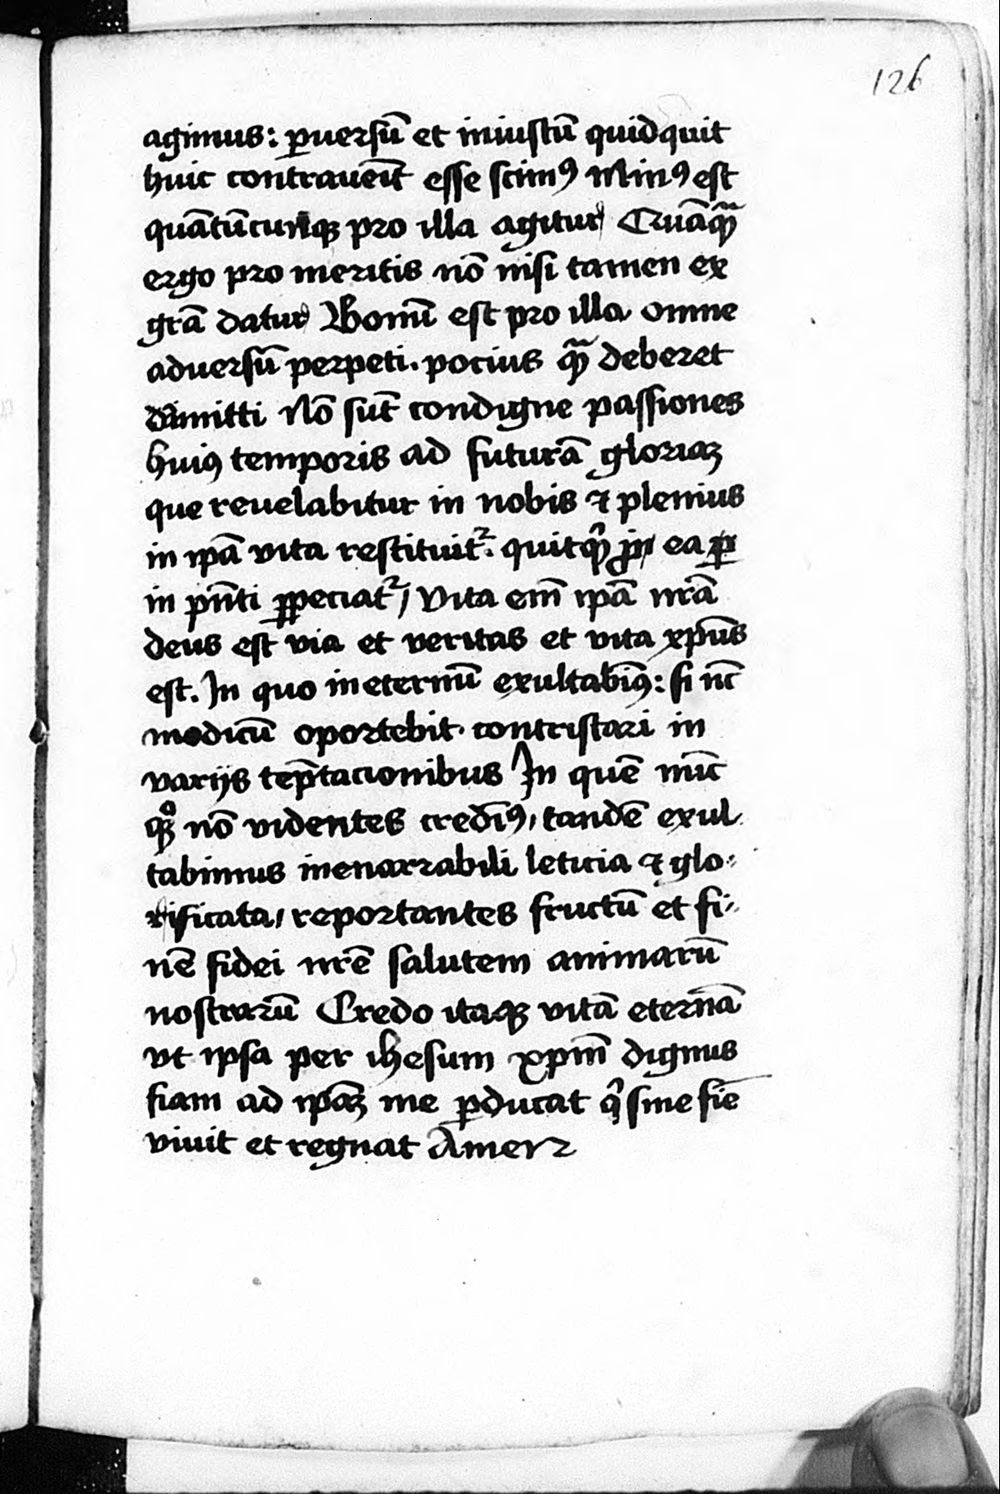 126
agimus: ꝑuersū et iniustū quidquit
huic contraueīt esse scimꝯ Minꝯ est
quātūcunqꝫ pro illa agitur Quāqᷓ
ergo pro meritis nō nisi tamen ex
gr̄a datur Bonū est pro illa omne
aduersū perpeti. pocius qᷓ deberet
dimitti Nō sūt condigne passiones
huiꝯ temporis ad futurā gloriaꝫ
que reuelabitur in nobis ⁊ plenius
in ip̄a vita restituit᷑. quitqͥ ea ꝑ
in pn̄ti ꝑpeciat᷑ / Vita em̄ ip̄a nr̄a
deus est via et veritas et vita xp̄us
est. In quo in eternū exultabīꝯ: si nc̄
modicū oportebit contristari in
varijs tep̄tacionibus In quē nūc
qͦꝫ nō videntes credīꝯ, tandē exul
tabimus inenarrabili leticia ⁊ glo-
rificata, reportantes fructū et fi-
nē fidei nr̄e salutem animarū
nostrarū Credo itaqꝫ vitā eternā
vt ipsa per ihesum xp̄m dignus
fiam ad ip̄aꝫ me ꝑducat qͥ sine fīe
viuit et regnat Amen